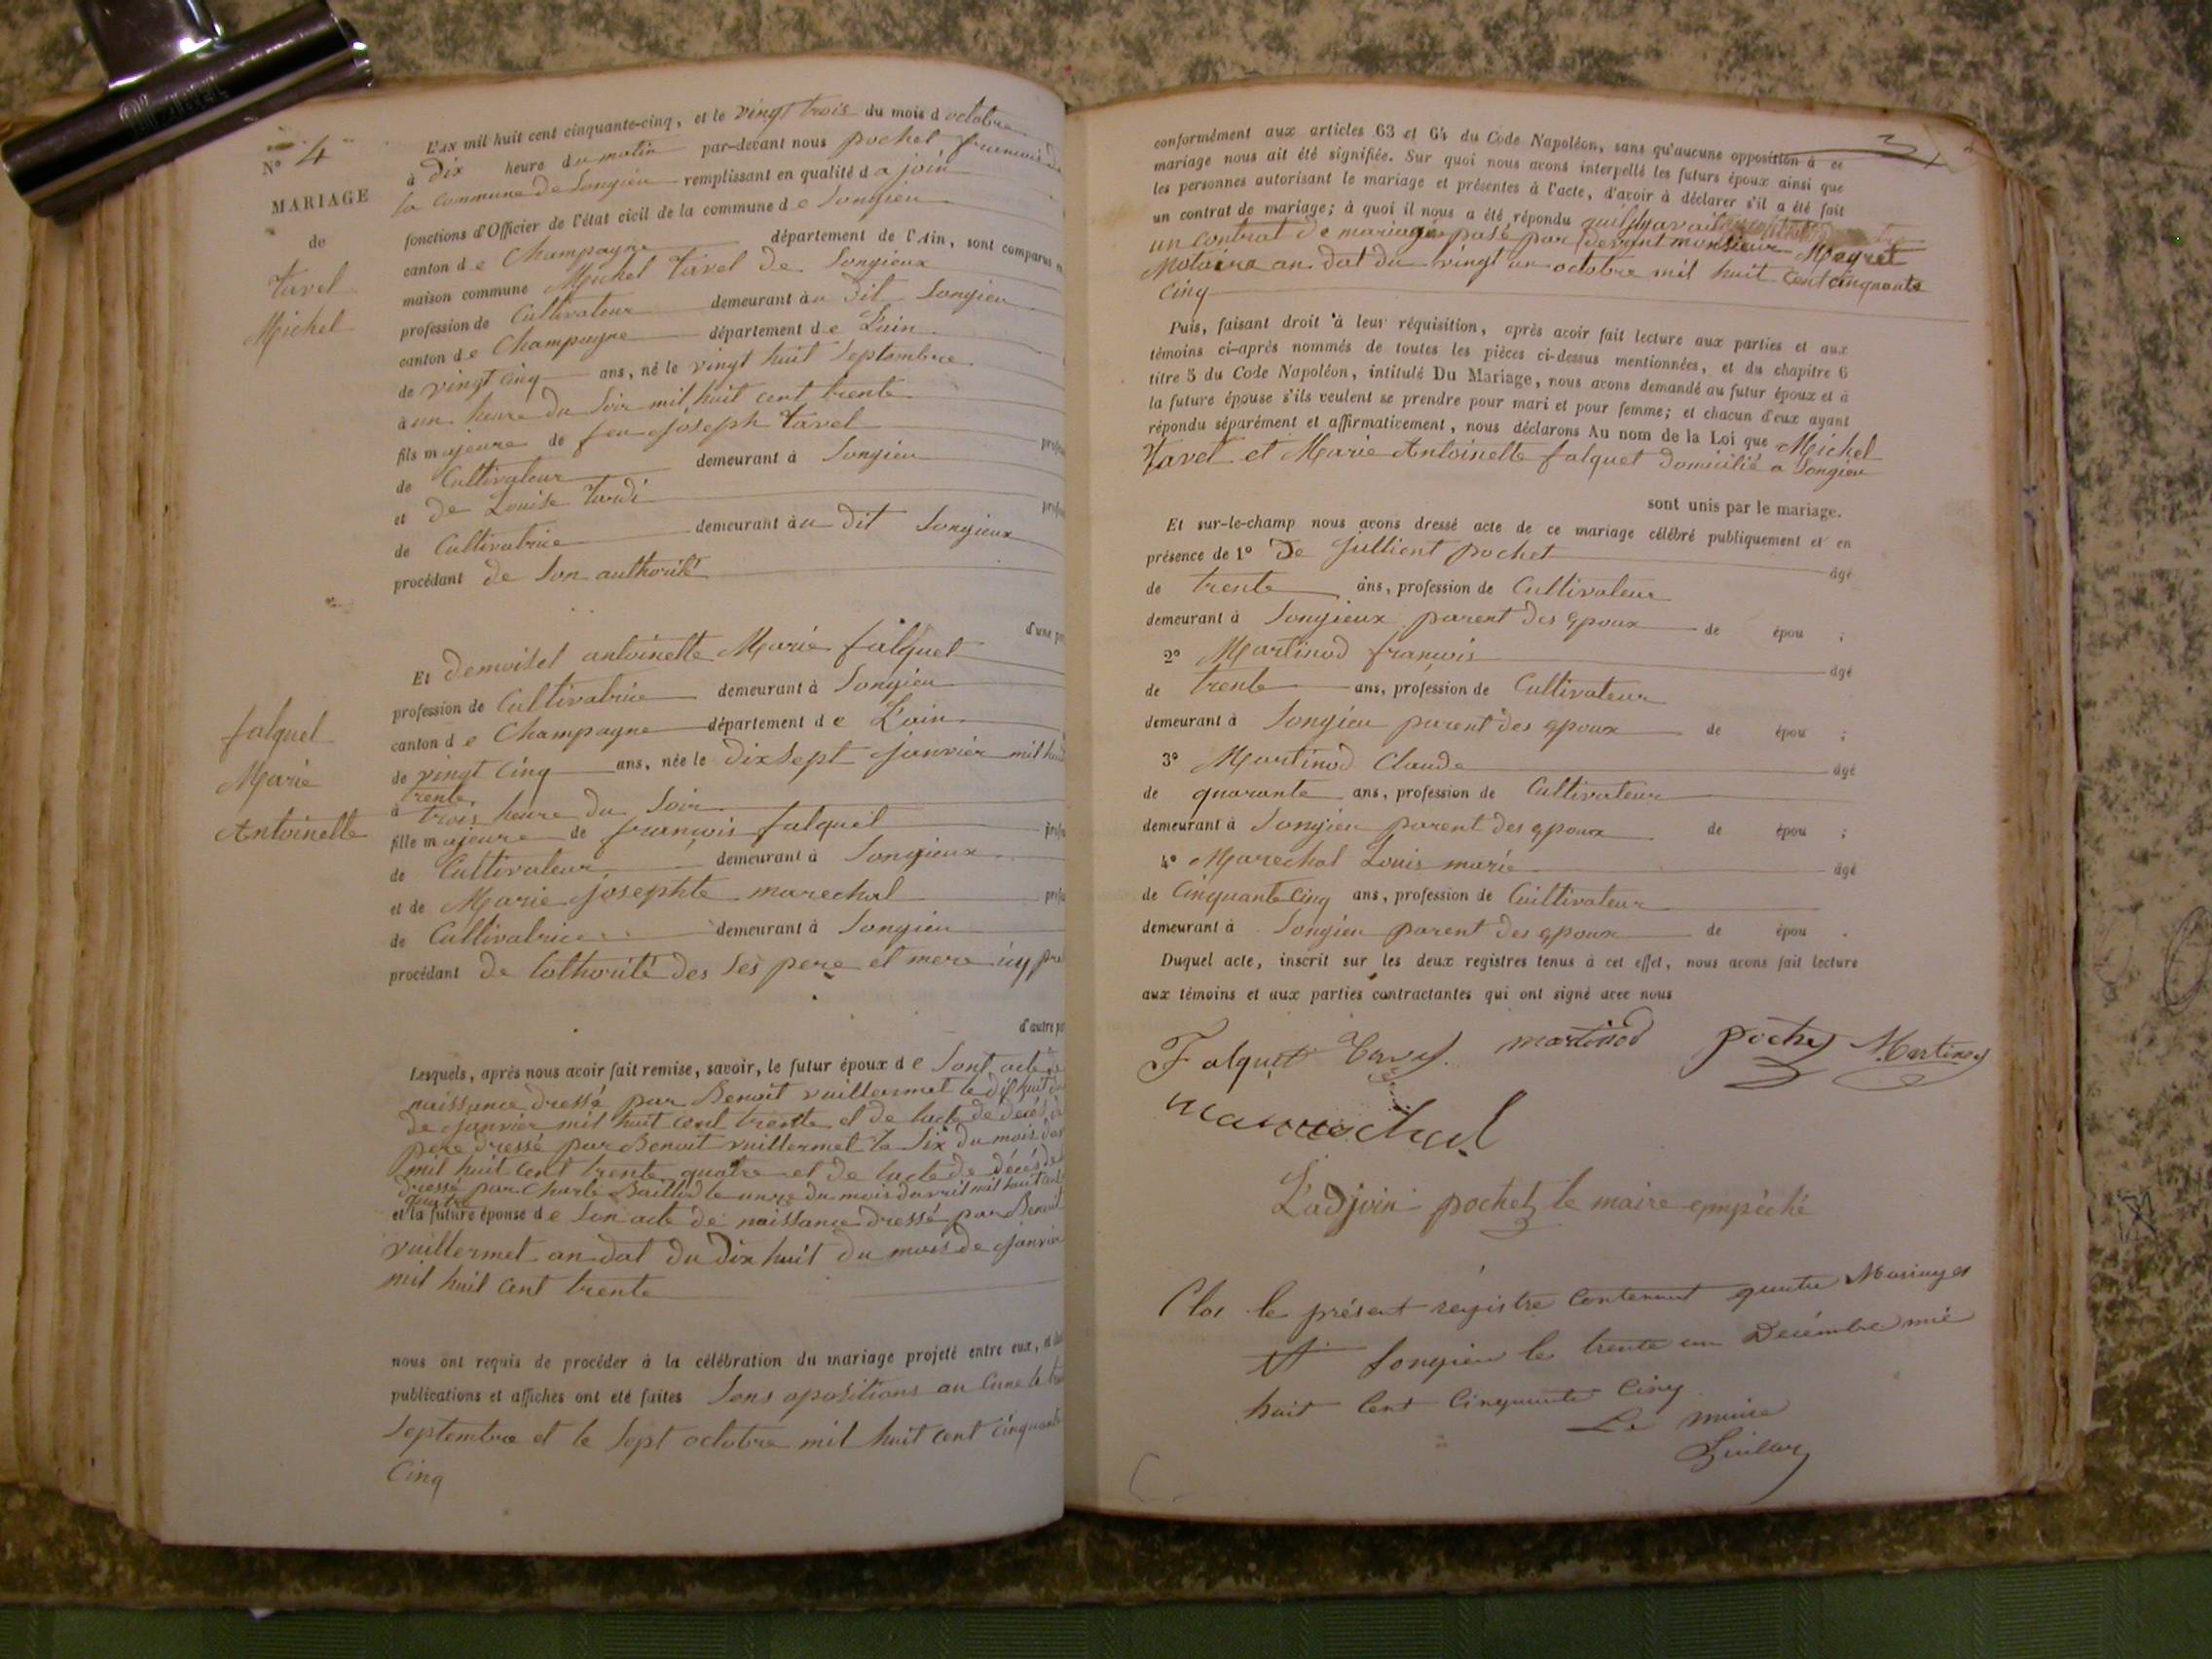 Nº 4
MARIAGE
de
Tavel
Michel
L'AN mil huit cent cinquante-cinq, et le vingt trois du mois d octobre
à dix heure du matin par-devant nous pochet, francois
la Commune de Songieu remplissant en qualité d a join
fonctions d'Officier de l'état civil de la commune d e Songieu
canton d e Champagne département de l'Ain, sont comparus
maison commune Michel Tavel de Songieux
profession de Cultivateur demeurant à u dit Songieu
canton d e Champagne département d e L'ain
de vingt cinq ans, né le vingt huit Septembre
à un heure du Soir mil huit cent trente
fils majeure de feu Joseph Tavel
de Cultivateur demeurant à Songieu
et de Louise Tardi
de Cultivatrice demeurant à u dit Songieux
procédant de Son authorité
Et demoisel antoinette Marie falquet
profession de Cultivatrice demeurant à Songieu
canton d e Champagne département d e L'ain
de vingt Cinq ans, née le dix Sept Janvier mil huit
trente
à trois heure du Soir
fille majeure de françois falquet
de Cultivateur demeurant à Songieux
et de Marie Josephte marechal
de Cultivatrice demeurant à Songieu
procédant de lothorité des Ses pere et mere icy
falquet
Marie
Antoinette
Lesquels, après nous avoir fait remise, savoir, le futur époux d e Sont acte
naissance dressé par Benoit vuillermet le
de Janvier mil huit cent trente et de lacte de deces
pere dressé par Benoit vuillermet le Six du mois
mil huit cent trente quatre et de lacte de déces
dressé par Charle Baillod le onze du mois davril mil huit cent
quatre
et la future épouse d e Son acte de naissance dressé par Benoit
vuillermet an dat du Dix huit du mois de Janvier
mil huit cent trente
nous ont requis de procéder à la célébration du mariage projeté entre eux,
publications et affiches ont été faites Sens opositions au Cune le
Septembre et le Sept octobre mil huit cent cinquante
Cinq
conformément aux articles 63 et 64 du Code Napoléon, sans qu'aucune opposition à ce
mariage nous ait été signifiée. Sur quoi nous avons interpellé les futurs époux ainsi que
les personnes autorisant le mariage et présentes à l'acte, d'avoir à déclarer s'il a été fait
un contrat de mariage; à quoi il nous a été répondu
un Contrat de mariage pasé par devent monsieur Megret
Notaire an dat du vingt un octobre mil huit Cent cinquante
Cinq
Puis, faisant droit à leur réquisition, après avoir fait lecture aux parties et aux
témoins ci-après nommés de toutes les pièces ci-dessus mentionnées, et du chapitre 6
titre 5 du Code Napoléon, intitulé Du Mariage, nous avons demandé au futur époux et à
la future épouse s'ils veulent se prendre pour mari et pour femme; et chacun d'eux ayant
répondu séparément et affirmativement, nous déclarons Au nom de la Loi que Michel
Tavel et Marie Antoinette falquet domicilié a Songieu
sont unis par le mariage.
Et sur-le-champ nous avons dressé acte de ce mariage célébré publiquement et en
présence de 1º De Jullient pochet âgé
de trente ans, profession de Cultivateur
demeurant à Songieux parent des epoux de épou ;
2º Martinod francois âgé
de trente ans, profession de Cultivateur
demeurant à Songieu parent des epoux de épou ;
3º Martinod Claude âgé
de quarante ans, profession de Cultivateur
demeurant à Songieu parent des epoux de épou ;
4º Marechal Louis marie âgé
de Cinquante Cinq ans, profession de Cultivateur
demeurant à Songieu parent des epoux de épou .
Duquel acte, inscrit sur les deux registres tenus à cet effet, nous avons fait lecture
aux témoins et aux parties contractantes qui ont signé avec nous
Falquet Tavel martinod pochet Martinod
marechal
L'adjoin pochet le maire empêché
Clos le présent régistre Contenant quatre Mariages
A Songieu le trente un Décembre mil
huit Cent Cinquante Cinq
Le maire